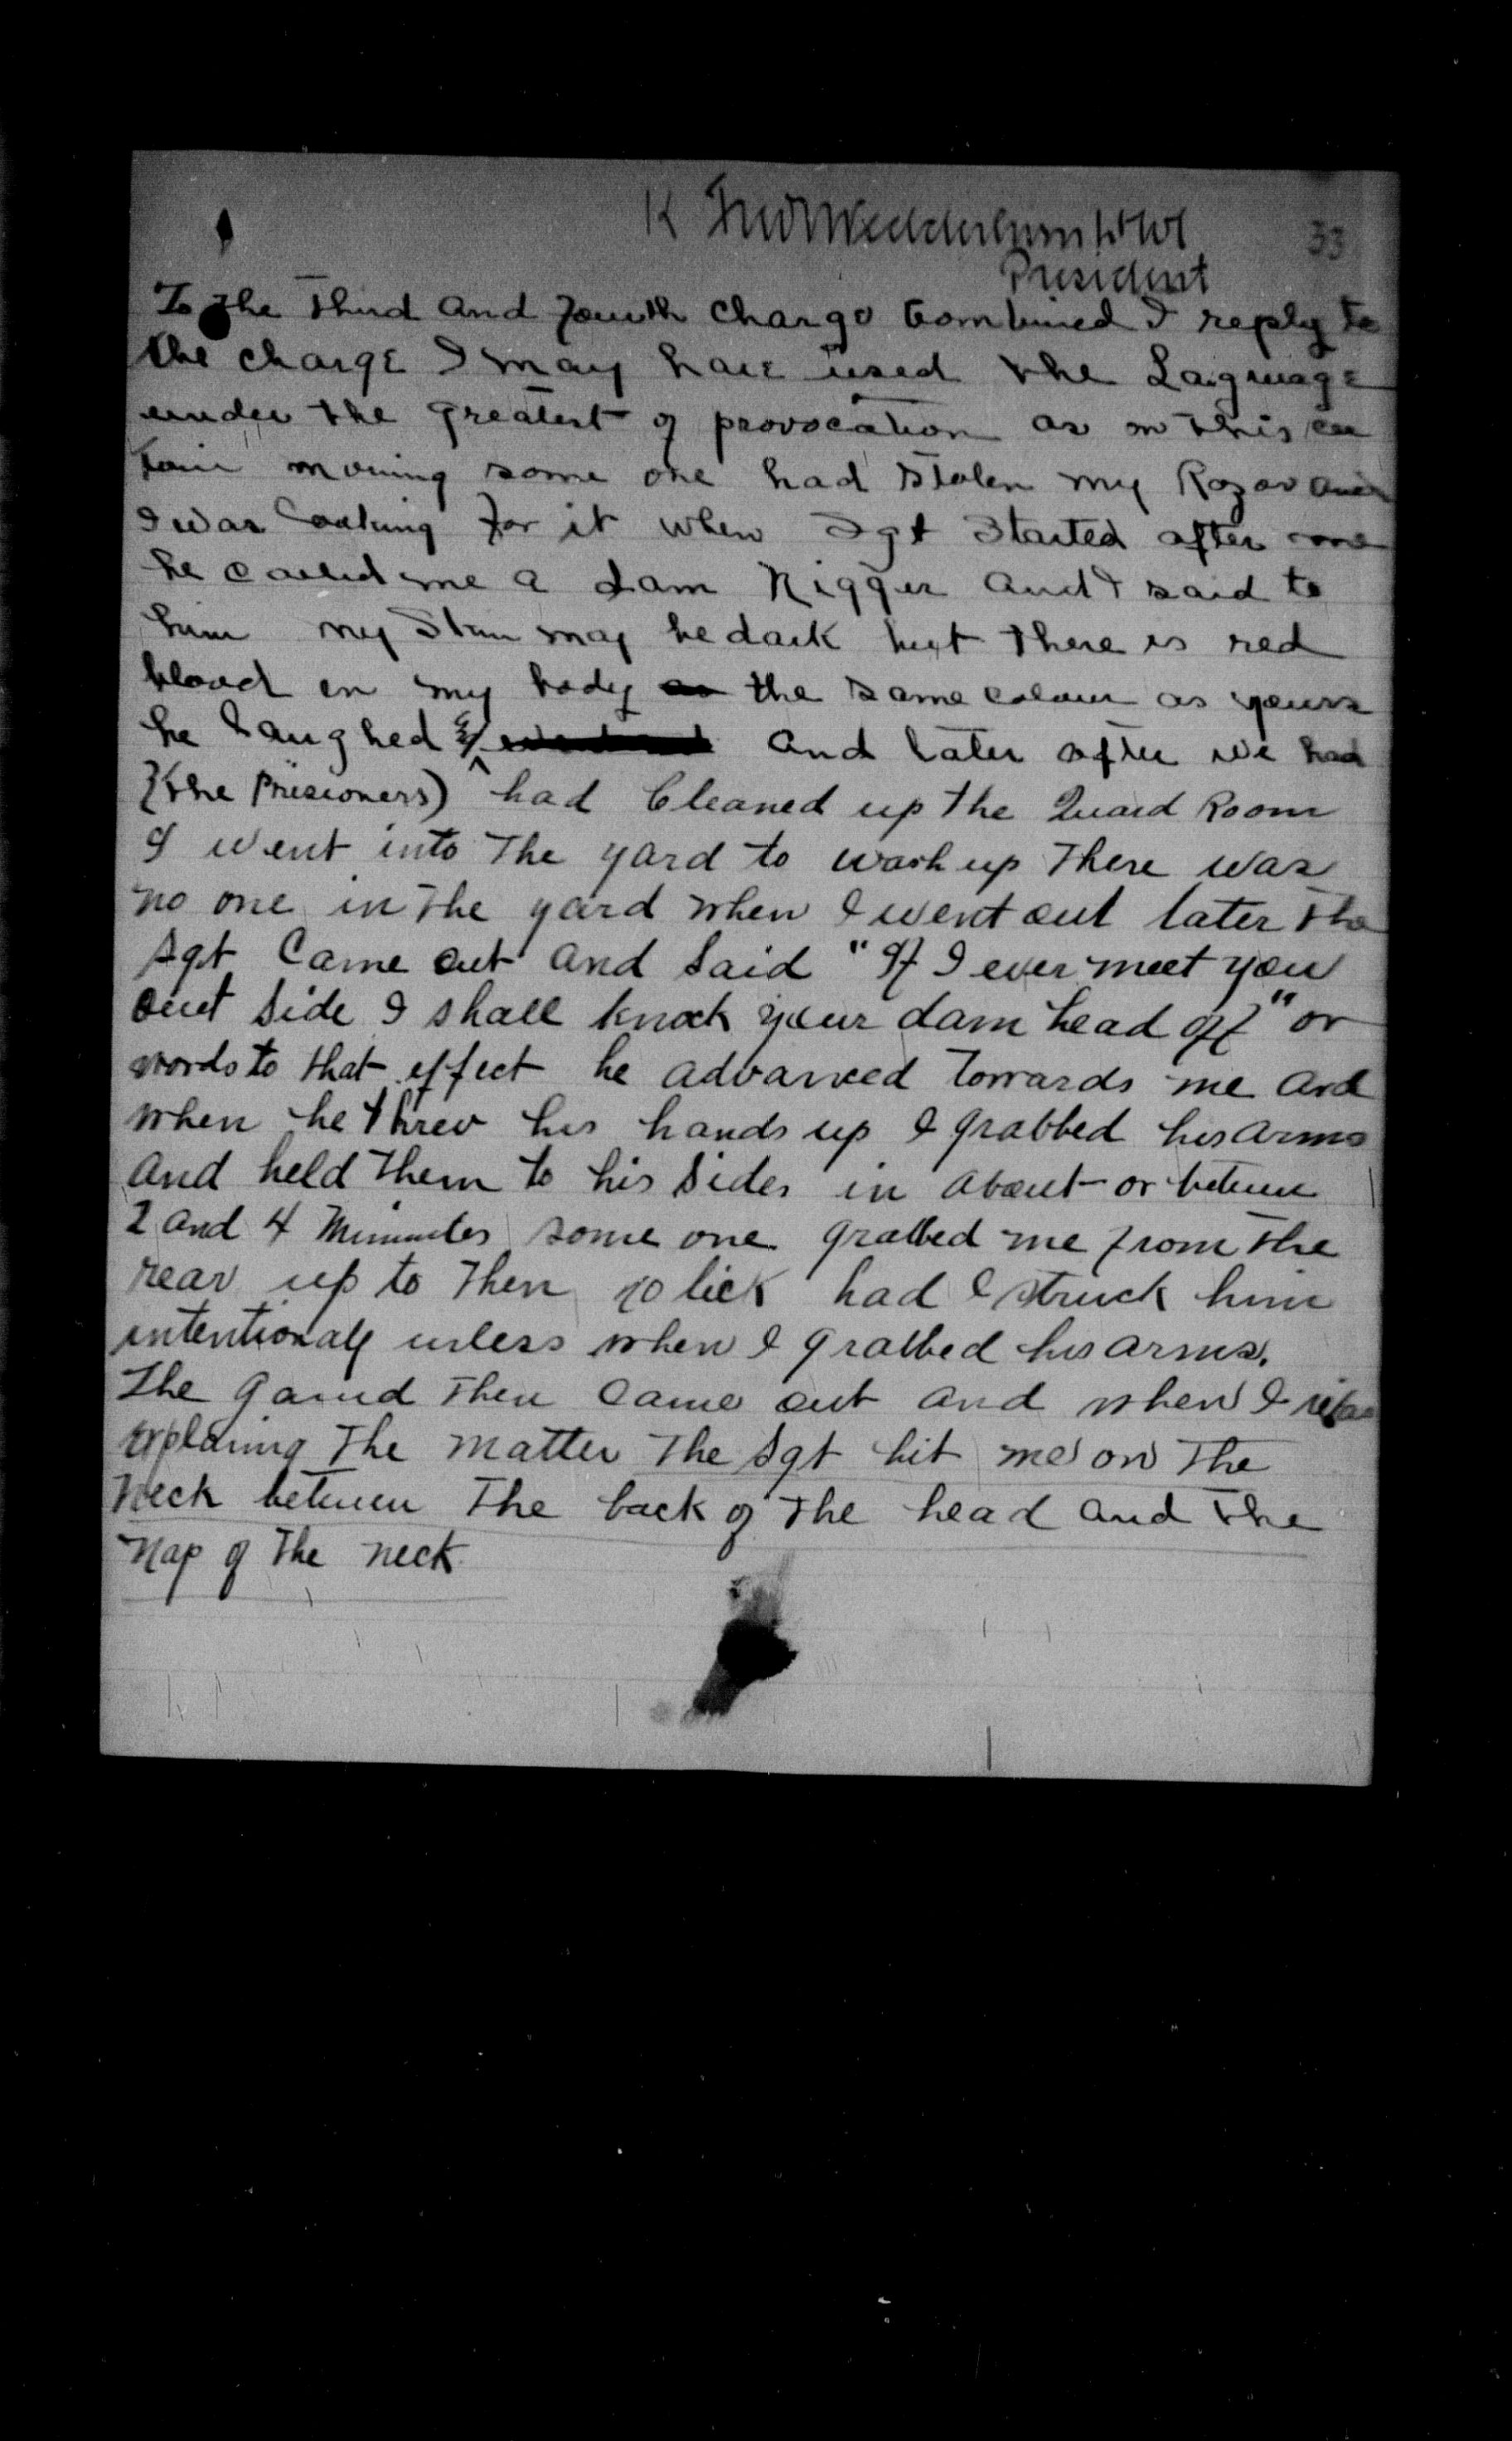 K
33
President
To the Third and Fourth Charge Combined I reply to
the charge I may have used the Laguage
under the greatest of provocation as on this cer
tain morning some one had stolen my Razor and
I was looking for it when Sgt Started after me
he called me a dam Nigger and I said to
him my Skin may be dark but there is red
blood in my body the same colour as yours
he laughed and later after we had
(the Prisioners) had Cleaned up the Guard Room
I went into The yard to wash up There was
no one in the yard when I went out later the
Sgt Came out and Said "If I ever meet you
out Side I shall knock your dam head off" or
words to that effect he advanced Towards me and
when he threw his hands up I grabbed his arms
and held Them to his Sides in about or between
2 and 4 Minuutes some one grabbed me from the
rear up to Then no lick had I struck him
intentionaly unless when I grabbed his arms.
The Gaurd Then Came out and when I
explaning The matter The Sgt hit me on The
Neck between The back of The head and the
Nap of The neck